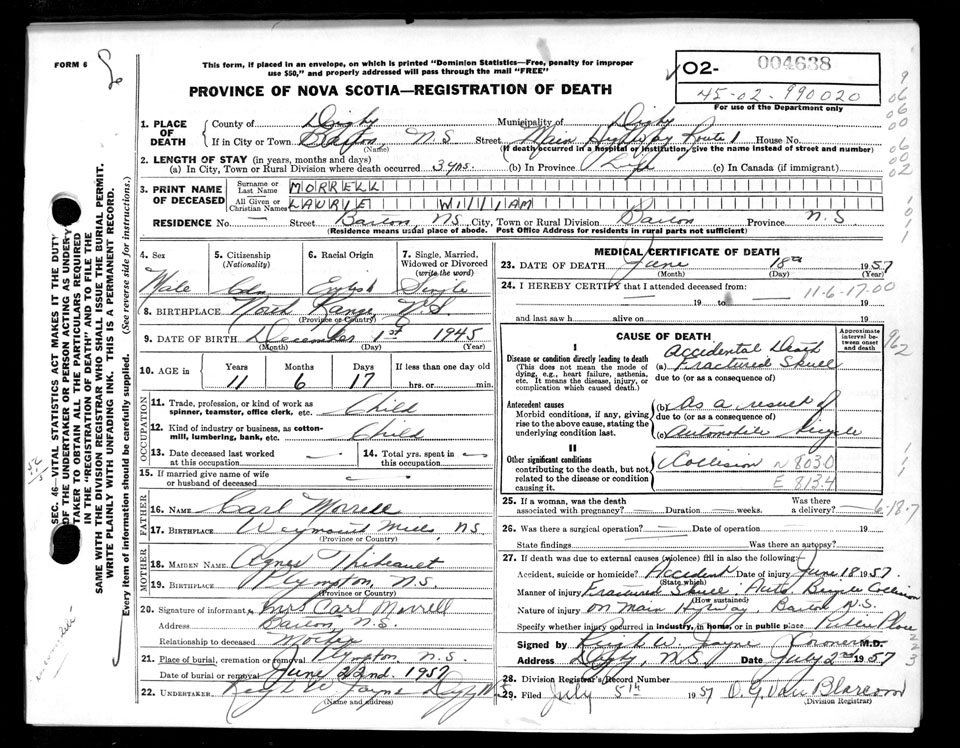 FORM 6
This form, if placed in an envelope, on which is printed "Dominion Statistics—Free, penalty for improper
use $50," and properly addressed will pass through the mail "FREE"
PROVINCE OF NOVA SCOTIA—REGISTRATION OF DEATH
O2- 004638
45-02-990020
For use of the Department only
1. PLACE OF DEATH
County of Digby Municipality of Digby
If in City or Town Barton, N.S Street Main Highway Route 1 House No.
(Name) (If death occurred in a hospital or institution, give the name instead of street and number)
2. LENGTH OF STAY (in years, months and days)
(a) In City, Town or Rural Division where death occurred 3 yrs. (b) In Province Life (c) In Canada (if immigrant)
3. PRINT NAME OF DECEASED
Surname or Last Name MORRELL
All Given or Christian Names LAURIE WILLIAM
RESIDENCE No. — Street Barton, N.S, City, Town or Rural Division Barton Province N.S
(Residence means usual place of abode. Post Office Address for residents in rural parts not sufficient)
4. Sex
Male
5. Citizenship (Nationality)
Cdn
6. Racial Origin
English
7. Single, Married, Widowed or Divorced (write the word)
Single
8. BIRTHPLACE North Range N.S
(Province or Country)
9. DATE OF BIRTH December 1st 1945
(Month) (Day) (Year)
10. AGE in Years Months Days If less than one day old
11 6 17 hrs. or min.
OCCUPATION
11. Trade, profession, or kind of work as spinner, teamster, office clerk, etc. Child
12. Kind of industry or business, as cotton-mill, lumbering, bank, etc. Child
13. Date deceased last worked at this occupation —
14. Total yrs. spent in this occupation —
15. If married give name of wife or husband of deceased —
FATHER
16. NAME Carl Morrell
17. BIRTHPLACE Weymouth Mills, NS
(Province or Country)
MOTHER
18. MAIDEN NAME Agnes Thibeault
19. BIRTHPLACE Plympton, N.S.
(Province or Country)
20. Signature of informant Mrs Carl Morrell
Address Barton, N.S.
Relationship to deceased Mother
21. Place of burial, cremation or removal Plympton, N.S.
Date of burial or removal June 22nd. 1957
22. UNDERTAKER Keigh W Jayne Digby N.S
(Name and address)
MEDICAL CERTIFICATE OF DEATH
23. DATE OF DEATH June 18th 1957
(Month) (Day) (Year)
24. I HEREBY CERTIFY that I attended deceased from:
19 to 19
11-6-17.00
and last saw h alive on 19
CAUSE OF DEATH
Approximate interval between onset and death
I
Disease or condition directly leading to death
(This does not mean the mode of dying, e.g., heart failure, asthenia, etc. It means the disease, injury, or complication which caused death.)
Accidental Death
(a) Fractured Skull
due to (or as a consequence of)
Antecedent causes
Morbid conditions, if any, giving rise to the above cause, stating the underlying condition last.
(b) As a result of
due to (or as a consequence of)
(c) Automobile Bicycle
II
Other significant conditions contributing to the death, but not related to the disease or condition causing it.
Collision N 803.0
E 813.4
25. If a woman, was the death associated with pregnancy? Duration weeks. Was there a delivery?
6-18-7
26. Was there a surgical operation? — Date of operation 19
State findings Was there an autopsy?
27. If death was due to external causes (violence) fill in also the following:
Accident, suicide or homicide? Accident Date of injury June 18 1957.
(State which)
Manner of injury Fractured Skull, Auto Bicycle Collision
(How sustained)
Nature of injury on Main Highway, Barton N.S.
Specify whether injury occurred in industry, in home, or in public place Public Place
Signed by Keigh W. Jayne Coroner M.D.
Address Digby, N.S. Date July 2nd 1957
28. Division Registrar's Record Number
29. Filed July 5th 1957 O. G. Van Blarcom
(Division Registrar)
SEC. 46—VITAL STATISTICS ACT MAKES IT THE DUTY
OF THE UNDERTAKER OR PERSON ACTING AS UNDERTAKER TO OBTAIN ALL THE PARTICULARS REQUIRED
IN THE "REGISTRATION OF DEATH" AND TO FILE THE
SAME WITH THE DIVISION REGISTRAR WHO SHALL ISSUE THE BURIAL PERMIT.
WRITE PLAINLY WITH UNFADING INK. THIS IS A PERMANENT RECORD.
Every item of information should be carefully supplied. (See reverse side for instructions.)